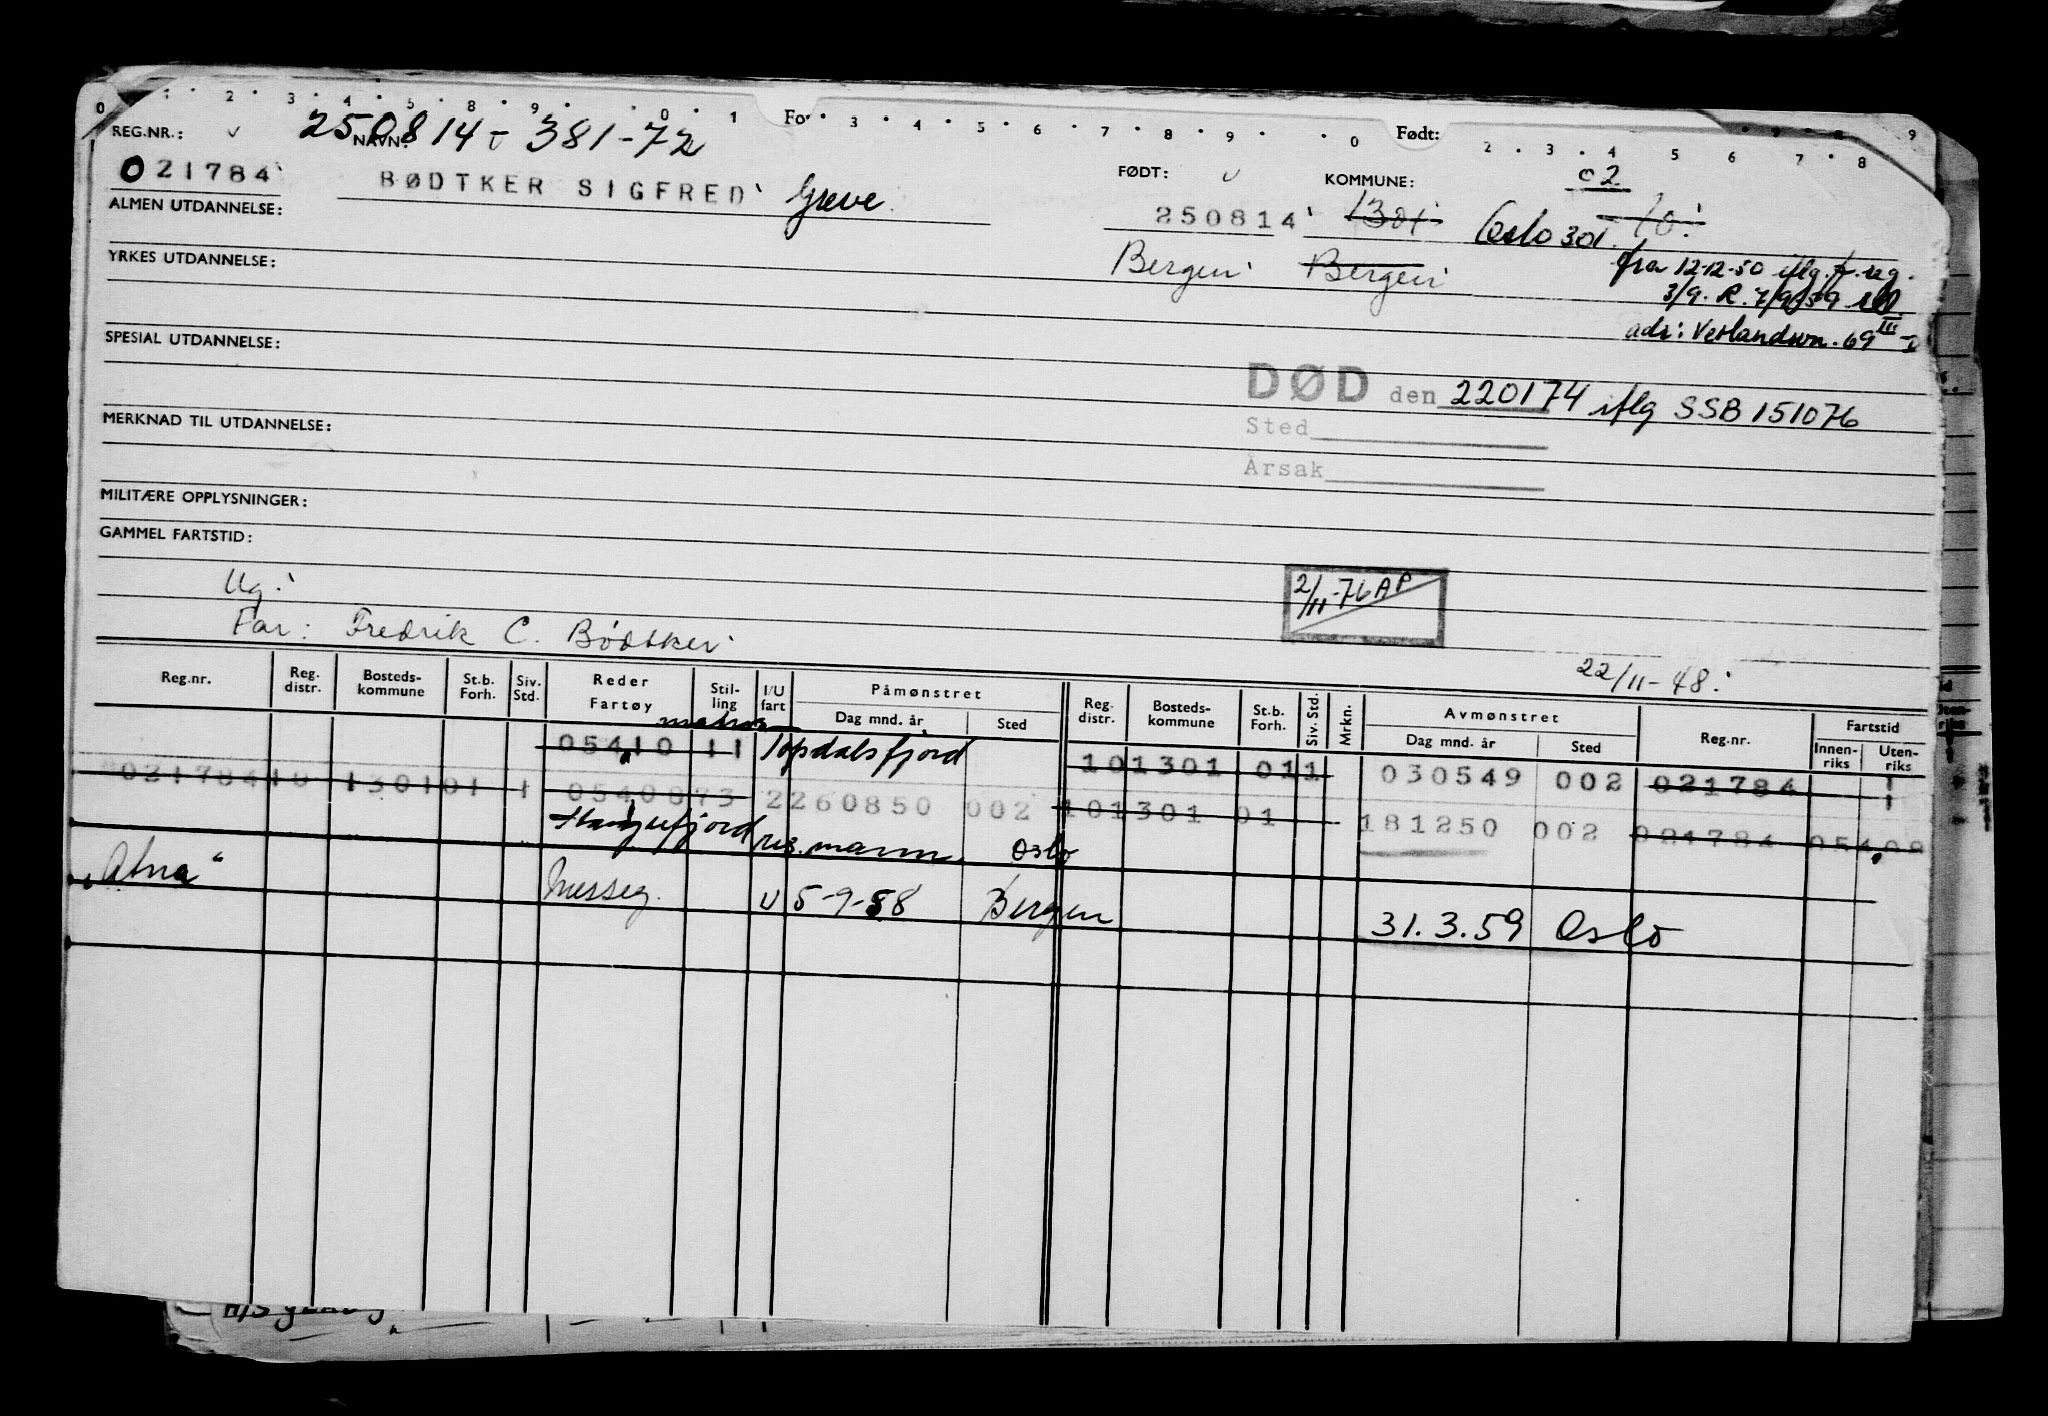 0 1 2 3 4 5 8 9 0 1 For 3 4 5 6 7 8 9 0 Født: 2 3 4 5 6 7 8 9
REG.NR.: 250814 - 381-72
NAVN: FØDT: KOMMUNE: 02
021784 BØDTKER SIGFRED Greve. 250814 1301 Oslo 301. 10.
ALMEN UTDANNELSE:
Bergen Bergen fra 12-12-50 iflg. f. reg.
YRKES UTDANNELSE: 3/9. R. 7/9-59
adr: Vetlandsvn. 69 III
SPESIAL UTDANNELSE:
DØD den 220174 iflg SSB 151076
MERKNAD TIL UTDANNELSE: Sted
Årsak
MILITÆRE OPPLYSNINGER:
GAMMEL FARTSTID:
Ug. 2/11-76 AP
Far: Fredrik C. Bødtker
22/11-48.
Reg.nr. Reg. distr. Bosteds-kommune St.b. Forh. Siv. Std. Reder Fartøy Stil-ling I/U fart Påmønstret Dag mnd. år Sted Reg. distr. Bosteds-kommune St.b. Forh. Siv. Std. Mrkn. Avmønstret Dag mnd. år Sted Reg.nr. Fartstid Innen-riks Uten-riks
matros
05410 11 Topdalsfjord 101301 011 030549 002 021784 1
021784 10 1301 01 1 0540873 2260850 002 101301 01 181250 002 021784 05409
res. mann. Oslo
"Atna" Messeg. U 5-9-58 Bergen 31.3.59 Oslo